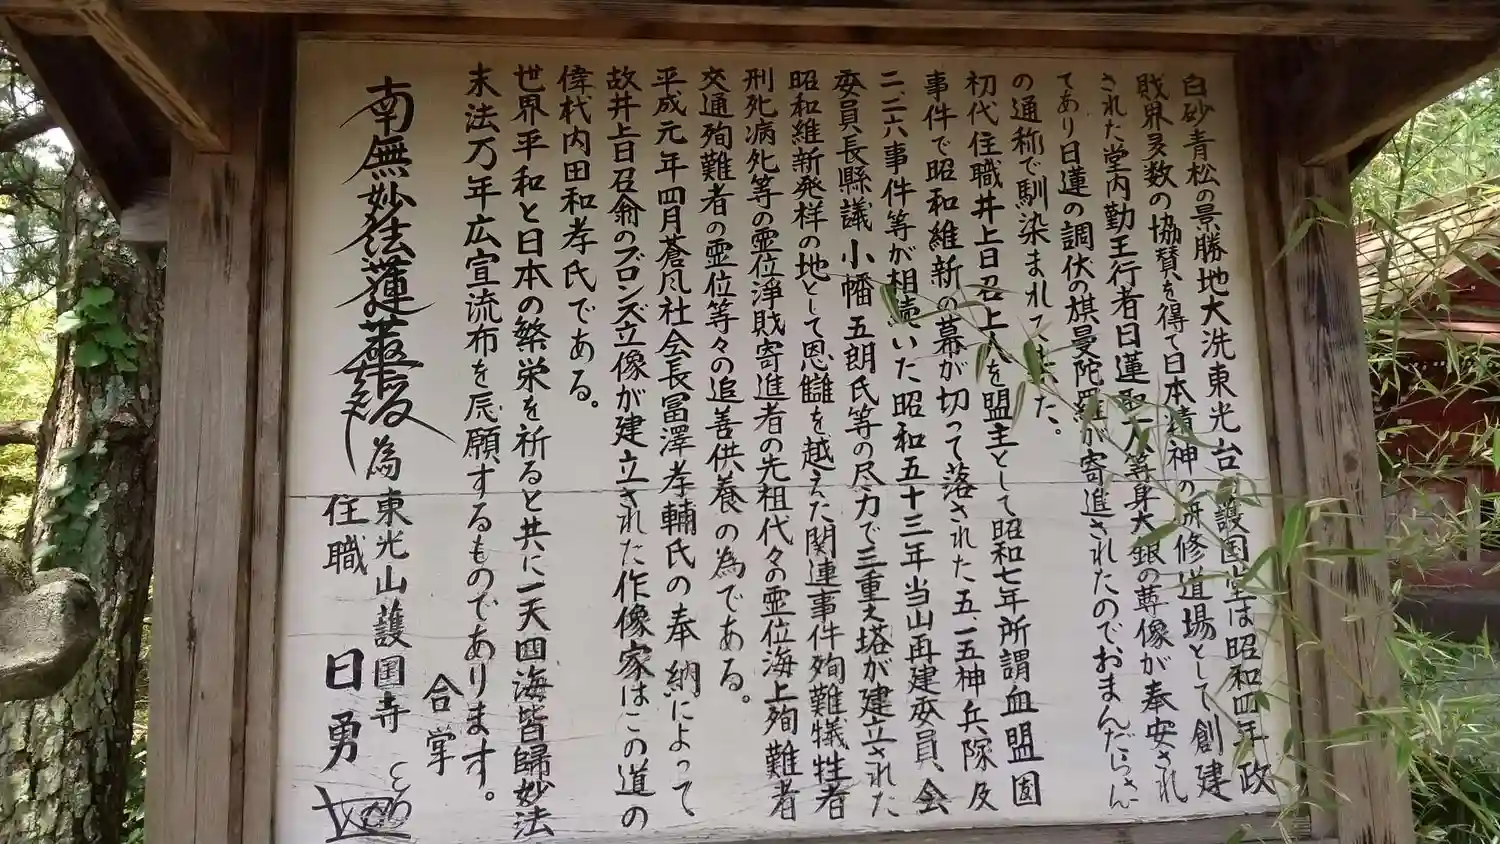 白砂青松の景勝地大洗東光台護国堂は昭和四年政
財界多数の協賛を得て日本精神の研修道場として創建
された堂内勤王行者日蓮聖人等身大銀の尊像が奉安され
てあり日蓮の調伏の旗曼陀羅が寄進されたのでおまんだらさん
の通称で馴染まれて来た。
初代住職井上日召上人を盟主として昭和七年所謂血盟団
事件で昭和維新の幕が切って落された五、一五神兵隊及
二、二六事件等が相続いた昭和五十三年当山再建委員、会
委員長縣議小幡五朗氏等の尽力で三重之塔が建立された
昭和維新発祥の地として恩讎を越えた関連事件殉難犠牲者
刑死病死等の霊位淨財寄進者の先祖代々の霊位海上殉難者
交通殉難者の霊位等々の追善供養の為である。
平成元年四月蒼凡社会長冨澤孝輔氏の奉納によって
故井上日召翁のブロンズ立像が建立された作像家はこの道の
偉材内田和孝氏である。
世界平和と日本の繁栄を祈ると共に一天四海皆歸妙法
末法万年広宣流布を念願するものであります。
合掌
南無妙法蓮華経
為東光山護国寺
住職 日勇